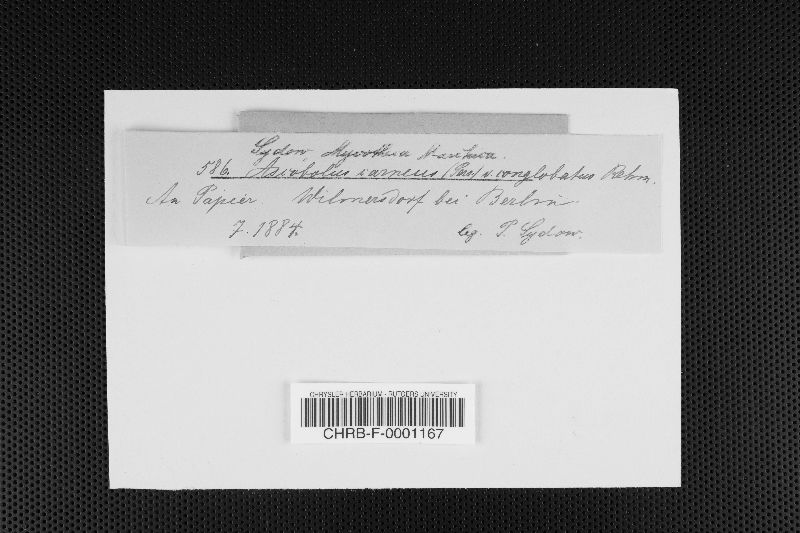 Sydow, Mycotheca Marchica.
586. Ascobolus carneus (Pers) v. conglobatus Rehm.
An Papier. Wilmersdorf bei Berlin.
7. 1884. leg. P. Sydow.
CHRYSLER HERBARIUM - RUTGERS UNIVERSITY
CHRB-F-0001167